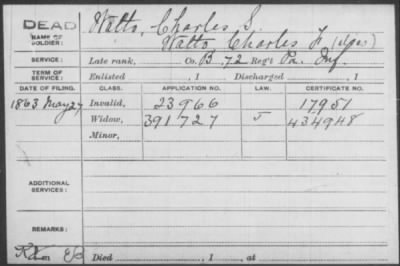 DEAD
NAME OF SOLDIER: Watts, Charles S.
Watts Charles F (alias)
SERVICE: Late rank, Co. B, 72 Reg't Pa. Inf.
TERM OF SERVICE: Enlisted , 1 Discharged , 1
DATE OF FILING. CLASS. APPLICATION NO. LAW. CERTIFICATE NO.
1863 May 27 Invalid, 23966 17951
Widow, 391727 434948
Minor,
ADDITIONAL SERVICES:
REMARKS:
Died , 1 , at